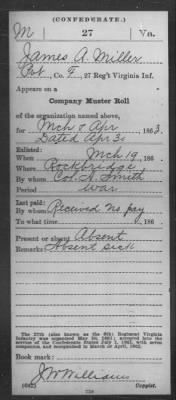 (CONFEDERATE.)
M 27 Va.
James A. Miller
Pvt, Co. F, 27 Reg't Virginia Inf.
Appears on a
Company Muster Roll
of the organization named above,
for Mch & Apr, 1863.
Dated Apr 30
Enlisted:
When Mch 19, 186
Where Rockbridge
By whom Col. Smith
Period War
Last paid:
By whom Received no pay
To what time , 186 .
Present or absent Absent
Remarks: Absent sick
The 27th (also known as the 6th) Regiment Virginia
Infantry was organized May 30, 1861; accepted into the
service of the Confederate States July 1, 1861, with seven
companies, and reorganized in
Book mark:
J W Williams
(642) Copyist.